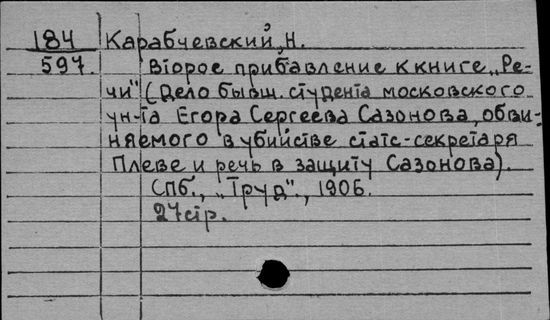 184 Карабчевский, Н.
597. Второе прибавление к книге „Ре-
чи" (Дело бывш. студента московского
ун-та Егора Сергеева Сазонова, обви-
няемого в убийстве статс-секретаря
Плеве и речь в защиту Сазонова).
СПб., „Труд"., 1906.
27стр.